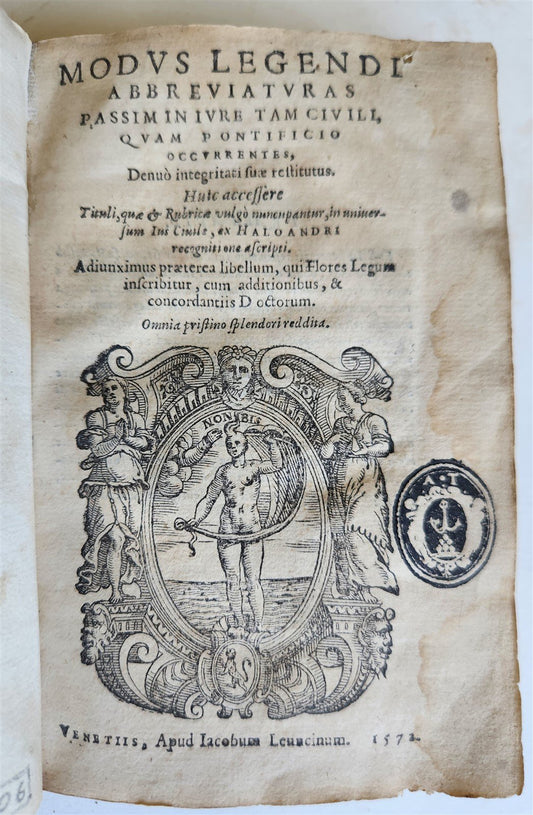 MODVS LEGENDI
ABBREVIATVRAS
PASSIM IN IVRE TAM CIVILI,
QVAM PONTIFICIO
OCCVRRENTES,
Denuò integritati suæ restitutus.
Huic accessere
Tituli, quæ & Rubricæ vulgò nuncupantur, in vniuer-
sum Ius Ciuile, ex HALOANDRI
recognitione ascripti.
Adiunximus præterea libellum, qui Flores Legum
inscribitur, cum additionibus, &
concordantiis Doctorum.
Omnia pristino splendori reddita.
NON BIS
A·T
VENETIIS, Apud Iacobum Leuncinum. 1572.
06